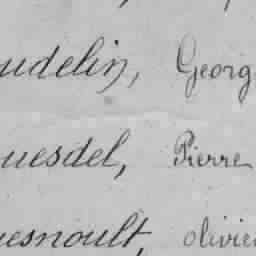 udelin, Georg
uesdel, Pierre
uesnoult, olivie